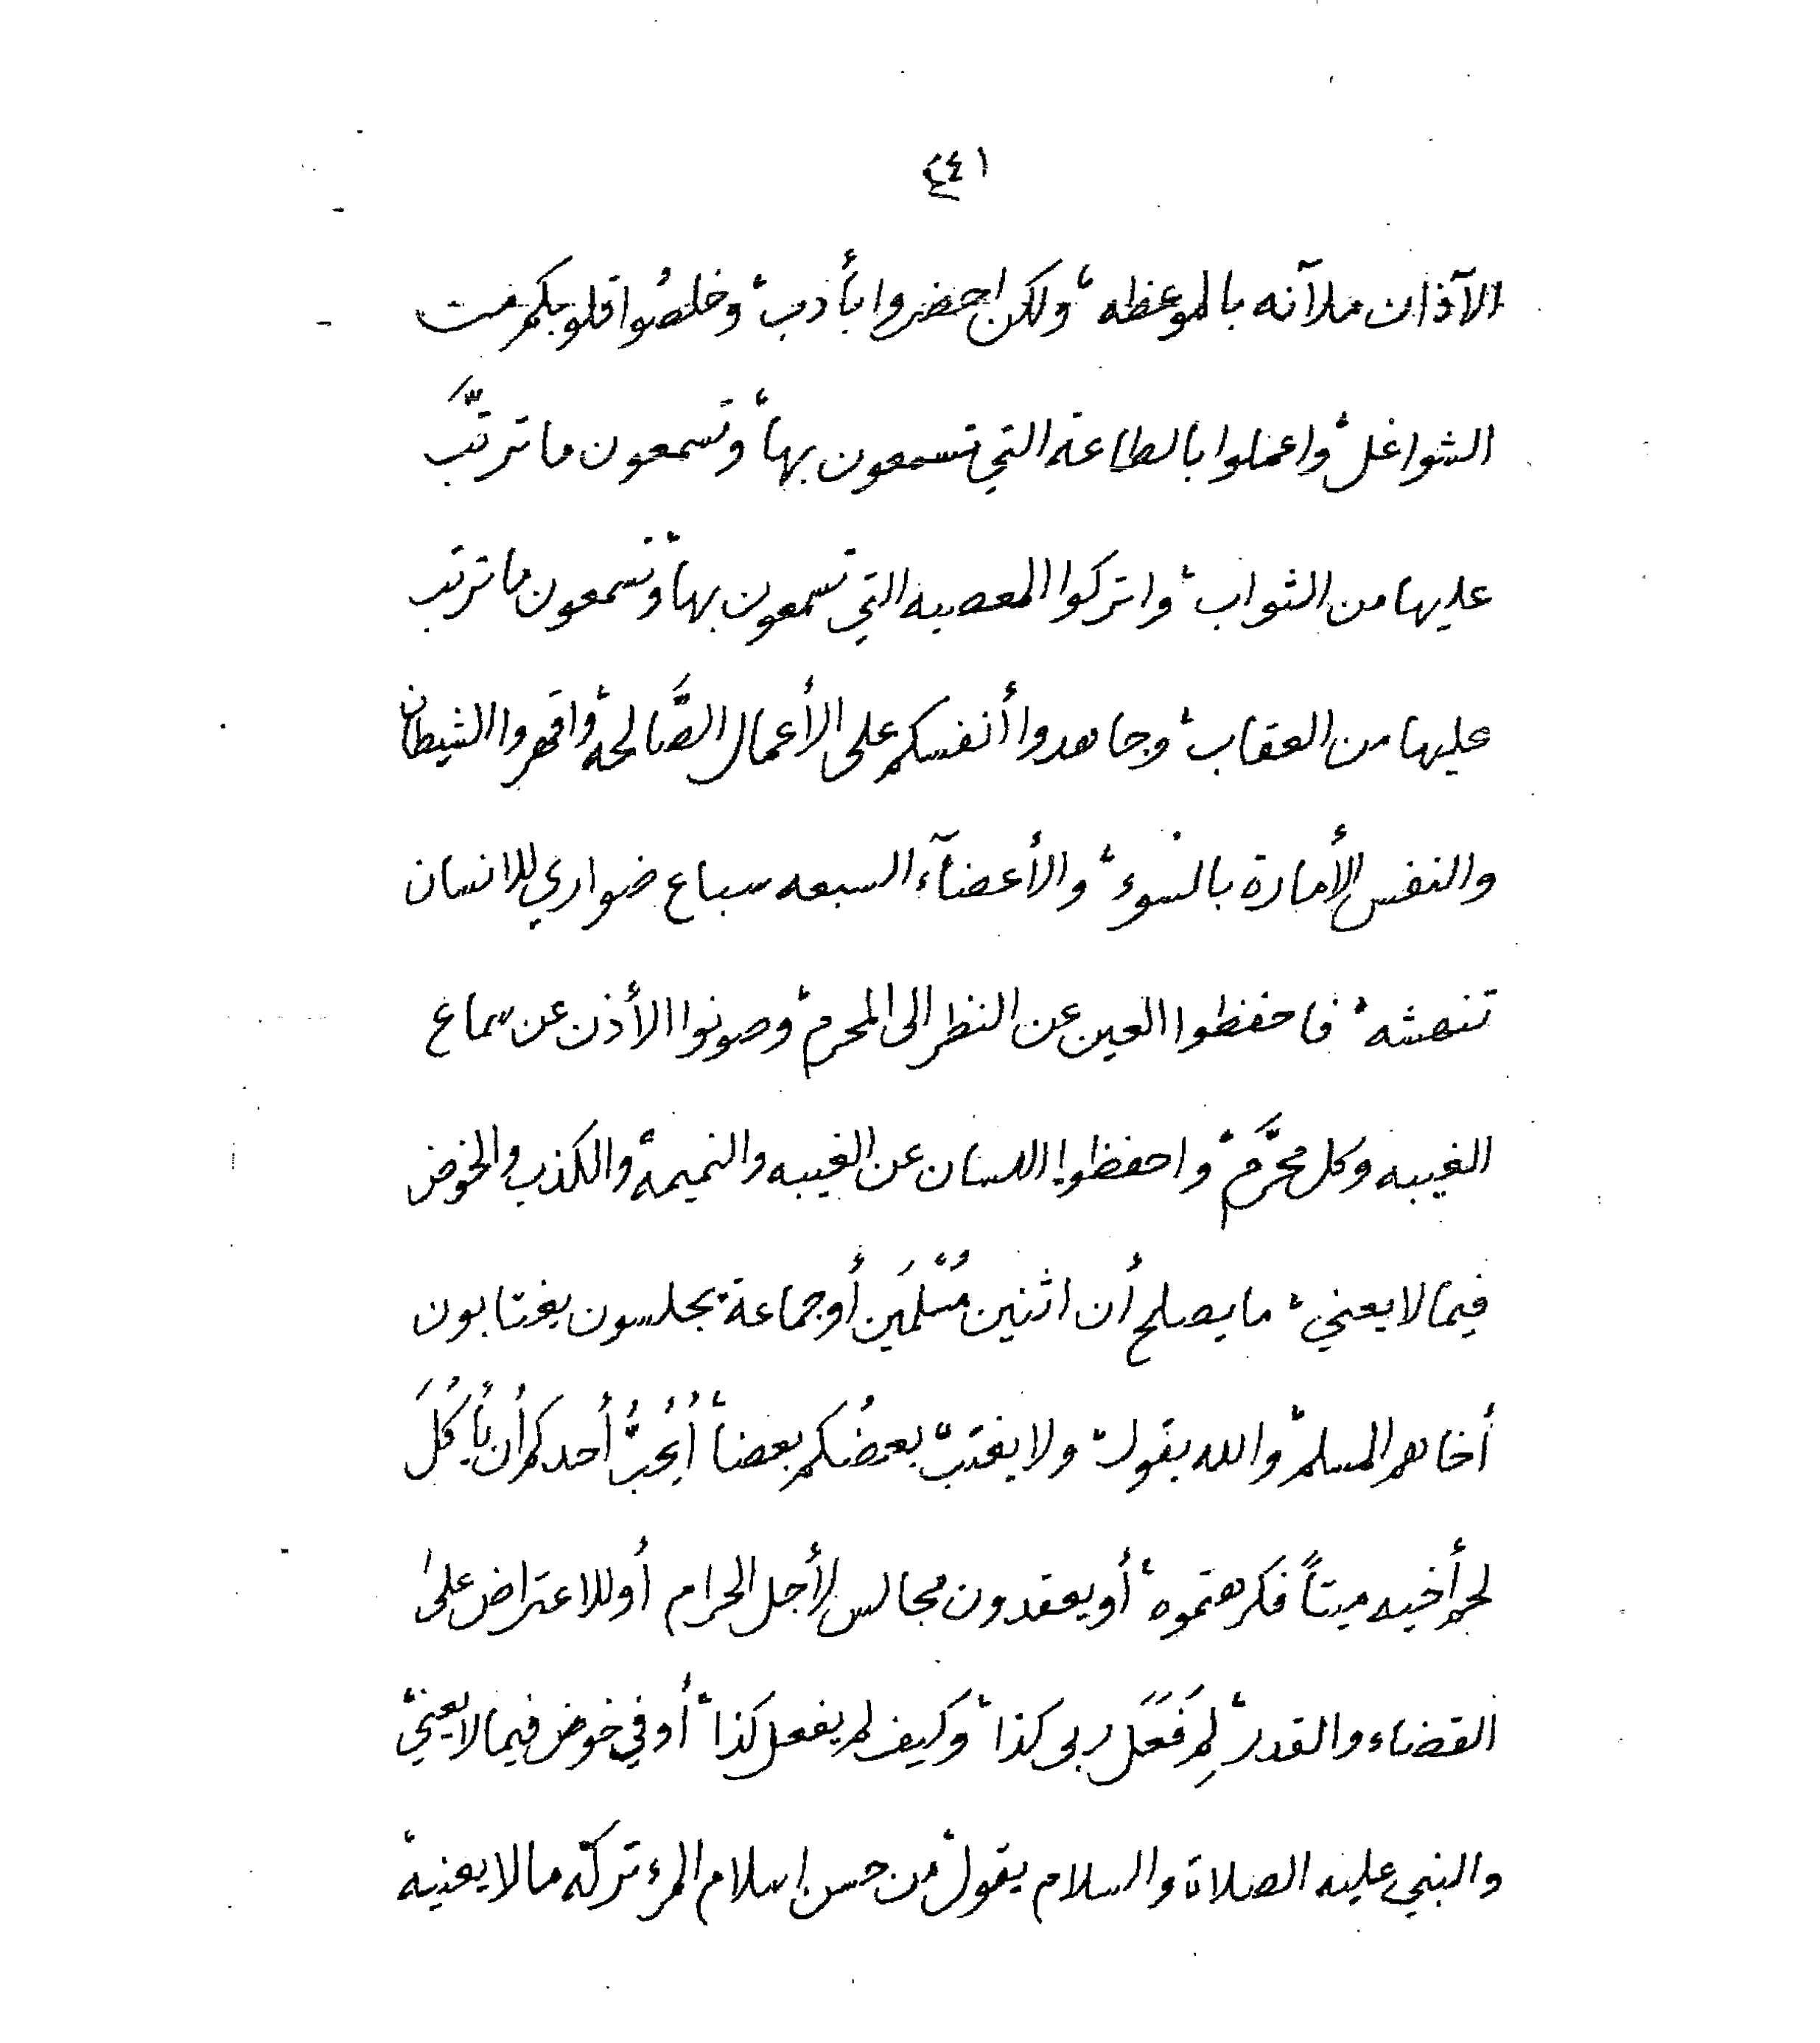 ٤٤١
الآذان ملآنه بالموعظه، ولكن احضروا بأدب، وخلصُوا قلوبكم من
الشواغل، واعملوا بالطاعة التي تسمعون بها، وتسمعون ما ترتَّب
عليها من الثواب، واتركوا المعصيه التي تسمعون بها، وتسمعون ما ترتب
عليها من العقاب، وجاهدوا أنفسكم على الأعمال الصَّالحه، واقهروا الشيطان
والنفس الأمارة بالسوء، والأعضآء السبعه سباع ضواري للانسان
تنهشه، فاحفظوا العين عن النظر الى المحرم، وصونوا الأذن عن سماع
الغيبه وكل محرَّم، واحفظوا اللسان عن الغيبه والنميمة، والكذب والخوض
فيما لا يعني، ما يصلح أن اثنين مُسْلمَين أو جماعة يجلسون يغتابون
أخاهم المسلم، والله يقول، ولا يغتبْ بعضُكم بعضاً أيُحِبُّ أحدكم أن يأكُلَ
لحم أخيه ميتاً فكرهتموه، أو يعقدون مجالس لأجل الحرام أو للاعتراض على
القضاء والقدر، لِمَ فَعَل ربى كذا، وكيف لم يفعل كذا، أو في خوض فيما لا يعني،
والنبي عليه الصلاة والسلام يقول، من حسن إسلام المرء تركه ما لا يعنيه،